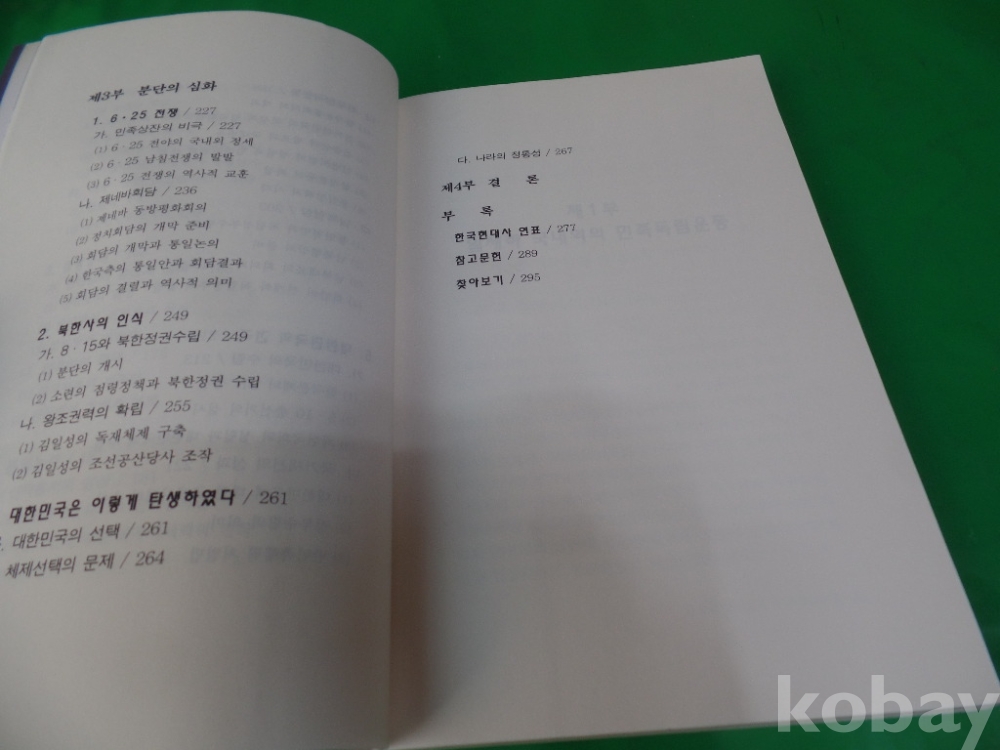 제3부 분단의 심화
1. 6·25 전쟁 / 227
가. 민족상잔의 비극 / 227
(1) 6·25 전야의 국내외 정세
(2) 6·25 남침전쟁의 발발
(3) 6·25 전쟁의 역사적 교훈
나. 제네바회담 / 236
(1) 제네바 동방평화회의
(2) 정치회담의 개막 준비
(3) 회담의 개막과 통일논의
(4) 한국측의 통일안과 회담결과
(5) 회담의 결렬과 역사적 의미
2. 북한사의 인식 / 249
가. 8·15와 북한정권수립 / 249
(1) 분단의 개시
(2) 소련의 점령정책과 북한정권 수립
나. 왕조권력의 확립 / 255
(1) 김일성의 독재체제 구축
(2) 김일성의 조선공산당사 조작
대한민국은 이렇게 탄생하였다 / 261
대한민국의 선택 / 261
체제선택의 문제 / 264
다. 나라의 정통성 / 267
제4부 결 론
부 록
한국현대사 연표 / 277
참고문헌 / 289
찾아보기 / 295
제1부
kobay